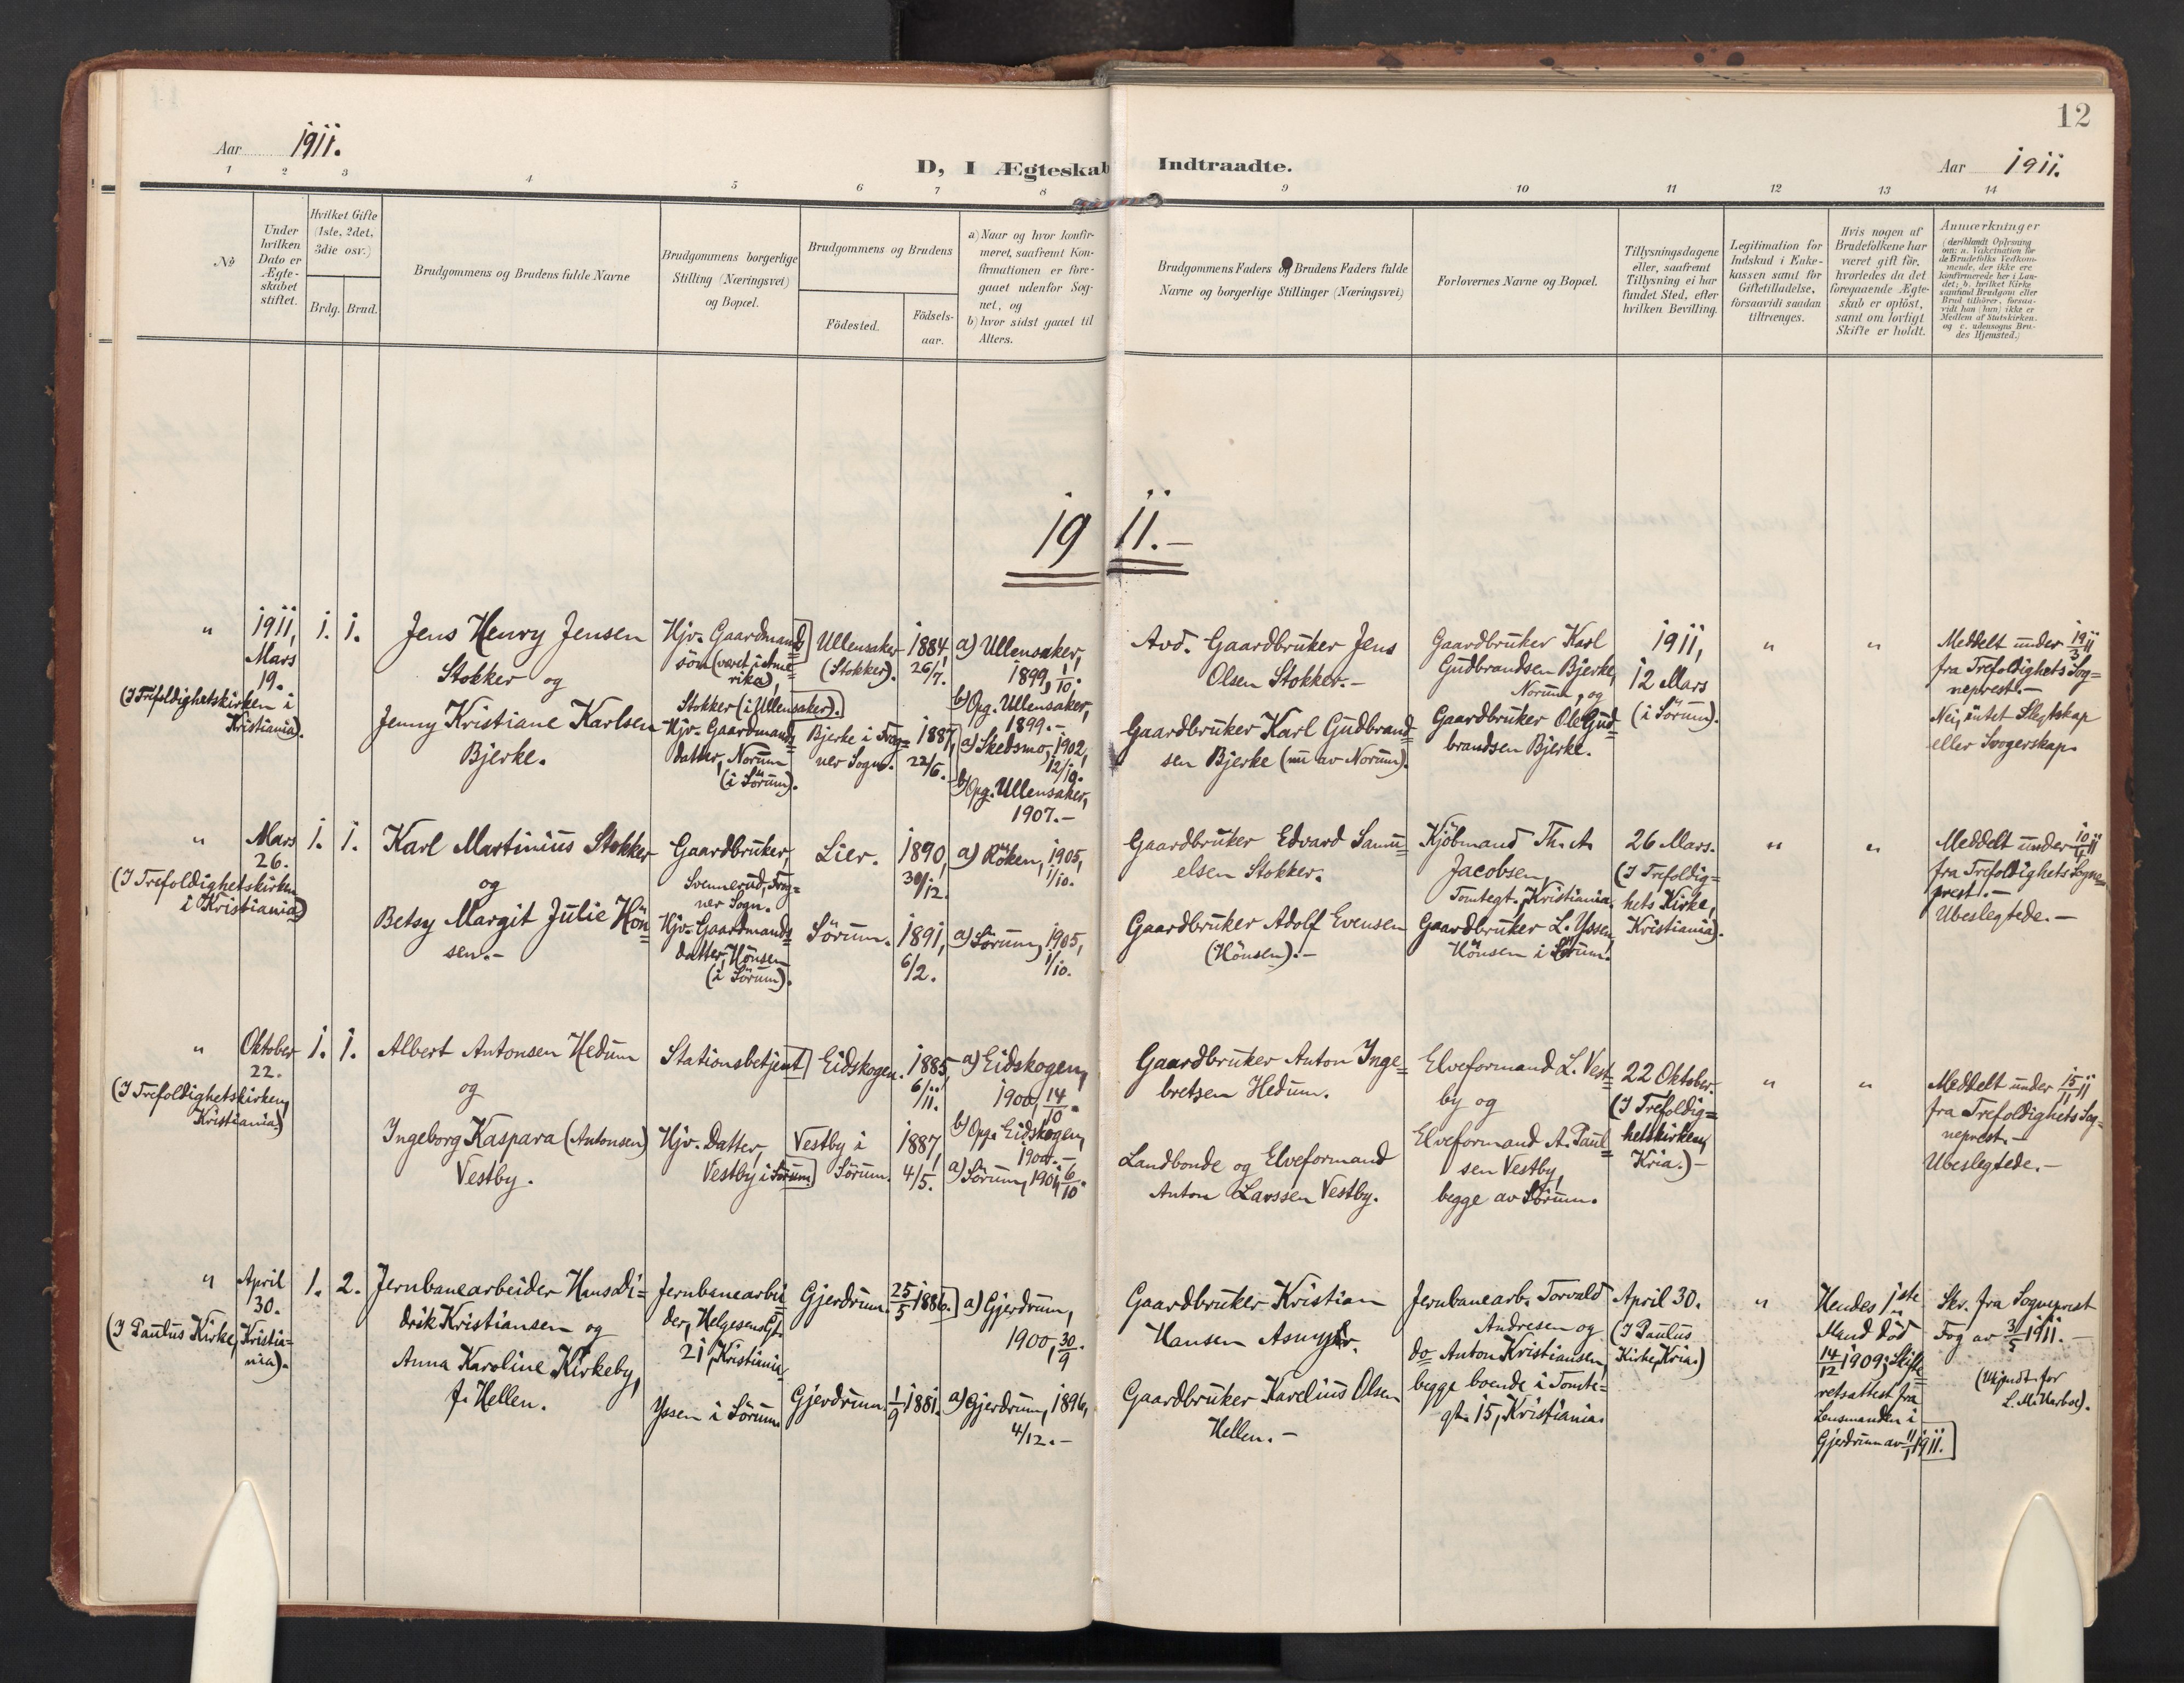 12
Aar 1911.
D, I Ægteskab Indtraadte.
Aar 1911.
1 2 3 4 5 6 7 8 9 10 11 12 13 14
No
Under
hvilken
Dato er
Ægte-
skabet
stiftet.
Hvilket Gifte
(1ste, 2det,
3die osv.)
Brdg. Brud.
Brudgommens og Brudens fulde Navne
Brudgommens borgerlige
Stilling (Næringsvei)
og Bopæl.
Brudgommens og Brudens
Födested.
Födsels-
aar.
a) Naar og hvor konfir-
meret, saafremt Kon-
firmationen er fore-
gaaet udenfor Sog-
net, og
b) hvor sidst gaaet til
Alters.
Brudgommens Faders og Brudens Faders fulde
Navne og borgerlige Stillinger (Næringsvei)
Forlovernes Navne og Bopæl.
Tillysningsdagene
eller, saafremt
Tillysning ei har
fundet Sted, efter
hvilken Bevilling.
Legitimation for
Indskud i Enke-
kassen samt for
Giftetilladelse,
forsaavidt saadan
tiltrænges.
Hvis nogen af
Brudefolkene har
været gift før,
hvorledes da det
foregaaende Ægte-
skab er opløst,
samt om lovligt
Skifte er holdt.
Anmærkninger
(deriblandt Oplysning
om: a. Vakcination for
de Brudefolks Vedkom-
mende, der ikke ere
konfirmerede her i Lan-
det; b. hvilket Kirke-
samfund Brudgom eller
Brud tilhører, forsaa-
vidt han (hun) ikke er
Medlem af Statskirken.
og c. udensogns Bru-
des Hjemsted.)
1911.-
" 1911,
Mars
19.
(I Trefoldighetskirken i
Kristiania).
1. 1.
Jens Henry Jensen
Stokker og
Jenny Kristiane Karlsen
Bjerke.
Hjv. Gaardmands=
søn (været i Ame=
rika),
Stokker (i Ullensaker).
Hjv. Gaardmands=
datter, Norum
(i Sörum).
Ullensaker
(Stokker).
Bjerke i Frog=
ner Sogn.
1884
26/7.
1887,
22/6.
a) Ullensaker,
1899, 1/10.
b) Opg. Ullensaker,
1899.-
a) Skedsmo, 1902,
12/10.
b) Opg. Ullensaker,
1907.-
Avd. Gaardbruker Jens
Olsen Stokker.-
Gaardbruker Karl Gudbrand=
sen Bjerke (nu av Norum).
Gaardbruker Karl
Gudbrandsen Bjerke,
Norum, og
Gaardbruker Ole Gud=
brandsen Bjerke.
1911,
12 Mars
(i Sörum).
" "
Meddelt under 19/3 11
fra Trefoldighets Sog=
neprest.-
Nei, intet Slegtskap
eller Svogerskap.
" Mars
26.
(I Trefoldighetskirken
i Kristiania)
1. 1.
Karl Martinius Stokker
og
Betsy Margit Julie Hön=
sen.-
Gaardbruker,
Svennerud, Frog=
ner Sogn.
Hjv. Gaardmands=
datter, Hönsen
(i Sörum).
Lier.
Sörum.
1890,
30/12.
1891,
6/2.
a) Röken, 1905,
1/10.
a) Sörum, 1905,
1/10.
Gaardbruker Edvard Samu=
elsen Stokker.
Gaardbruker Adolf Evensen
(Hönsen).-
Kjöbmand Th. A.
Jacobsen,
Tomtegt. , Kristiania.
Gaardbruker L. Yssen,
Hönsen i Sörum.
26 Mars.
(I Trefoldig=
hets Kirke,
Kristiania).
" "
Meddelt under 11
fra Trefoldighets Sogne=
prest.-
Ubeslegtede.-
" Oktober
22.
(I Trefoldighetskirken,
Kristiania)
1. 1.
Albert Antonsen Hedum
og
Ingeborg Kaspara (Antonsen)
Vestby.
Stationsbetjent
Hjv. Datter,
Vestby i Sörum
Eidskogen.
Vestby i
Sörum.
1885,
6/11.
1887,
4/5.
a) Eidskogen,
1900, 14/10.
b) Opg. Eidskogen,
1900.-
a) Sörum, 1901, 6/10.
Gaardbruker Anton Inge=
bretsen Hedum.
Landbonde og Elveformand
Anton Larssen Vestby.
Elveformand L. Vest=
by og
Elveformand A. Paul=
sen Vestby,
begge av Sörum.
22 Oktober.
(I Trefoldig=
hetskirken,
Kria.)-
" "
Meddelt under 15/11 11
fra Trefoldighets Sog=
neprest.-
Ubeslegtede.-
" April
30.
(I Paulus Kirke, Kristia=
nia).
1. 2.
Jernbanearbeider Hans Di=
drik Kristiansen og
Anna Karoline Kirkeby,
f. Hellen.
Jernbanearbei=
der, Helgesens Gt.
21, Kristiania
Yssen i Sörum
Gjerdrum.
Gjerdrum.
25/5 1886.
1/9 1881.
a) Gjerdrum,
1900, 30/9.
a) Gjerdrum, 1896,
4/12.-
Gaardbruker Kristian
Hansen Asmyr.
Gaardbruker Karelius Olsen
Hellen.-
Jernbanearb. Torvald
Andresen og
do Anton Kristiansen,
begge boende i Tomte=
gt. 15, Kristiania.
April 30.
(I Paulus
Kirke, Kria.)
"
Hendes 1ste
Mand død
14/12 1909; Skifte=
retsattest fra
Lensmanden i
Gjerdrum av 1911.
Skr. fra Sogneprest
Fog av 3/5 1911.-